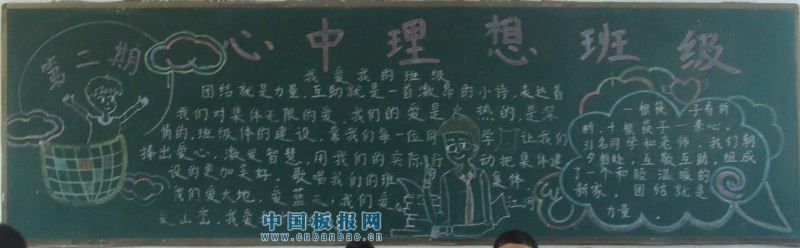 第二期
心中理想班级
我爱我的班级
团结就是力量,互助就是一首激昂的小诗,表达着
我们对集体无限的爱,我们的爱是火热的,是深
情的,班级体的建设,靠我们每一位同学,让我们
捧出爱心,激发智慧,用我们的实际行动把集体建
设的更加美好。歌唱我们的班集体,
我们爱大地,爱蓝天;我们爱江河
爱山峦,我爱
一根筷子易折
断,十根筷子一条心。
31名同学和老师,我们朝
夕相处,互敬互助,组成
了一个和睦温暖的
新家,团结就是
力量。
中国板报网
www.cnbanbao.cn